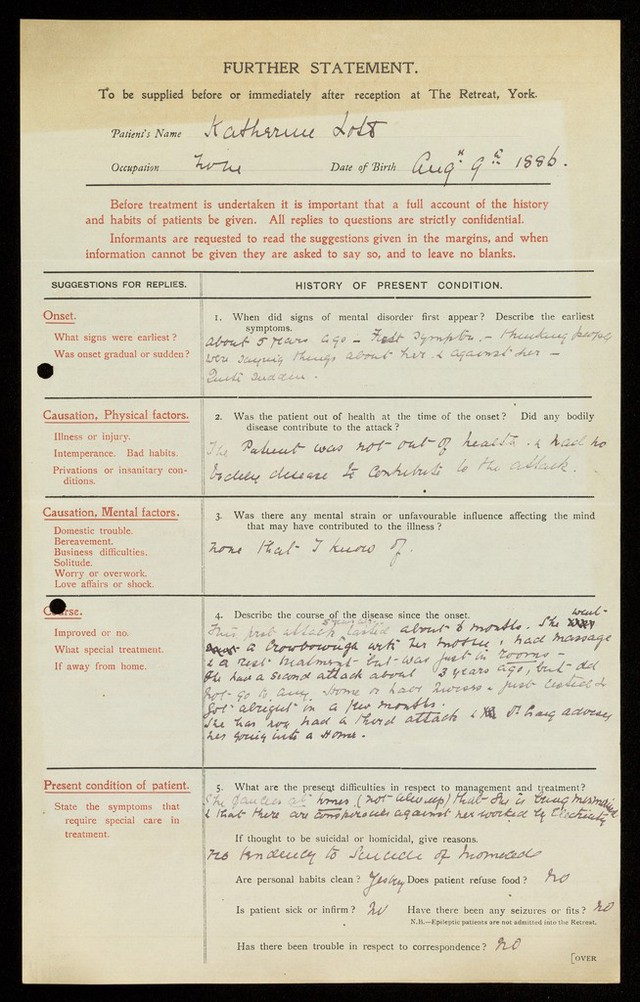 FURTHER STATEMENT.
To be supplied before or immediately after reception at The Retreat, York.
Patient's Name Katherine
Occupation None Date of Birth Aug 9 1886.
Before treatment is undertaken it is important that a full account of the history
and habits of patients be given. All replies to questions are strictly confidential.
Informants are requested to read the suggestions given in the margins, and when
information cannot be given they are asked to say so, and to leave no blanks.
SUGGESTIONS FOR REPLIES.
HISTORY OF PRESENT CONDITION.
Onset.
What signs were earliest?
Was onset gradual or sudden?
1. When did signs of mental disorder first appear? Describe the earliest
symptoms.
about 5 years ago – First symptom – thinking people
were saying things about her & against her –
Quite sudden.
Causation, Physical factors.
Illness or injury.
Intemperance. Bad habits.
Privations or insanitary con-
ditions.
2. Was the patient out of health at the time of the onset? Did any bodily
disease contribute to the attack?
The Patient was not out of health & had no
bodily disease to contribute to the attack.
Causation, Mental factors.
Domestic trouble.
Bereavement.
Business difficulties.
Solitude.
Worry or overwork.
Love affairs or shock.
3. Was there any mental strain or unfavourable influence affecting the mind
that may have contributed to the illness?
none that I know of.
Course.
Improved or no.
What special treatment.
If away from home.
4. Describe the course of the disease since the onset.
5 years ago
This first attack lasted about 3 months. She went
to Crowborough with her mother, had massage
& a rest treatment but was just in rooms –
She had a second attack about 3 years ago, but did
not go to any Home or have Nurses & just rested &
got alright in a few months.
She has now had a third attack & Dr Craig advises
her going into a Home.
Present condition of patient.
State the symptoms that
require special care in
treatment.
5. What are the present difficulties in respect to management and treatment?
She fancies at times (not always) that she is being mesmerised
& that there are conspiracies against her worked by Electricity
If thought to be suicidal or homicidal, give reasons.
no tendency to Suicide or Homicide
Are personal habits clean? Yes Does patient refuse food? No
Is patient sick or infirm? No Have there been any seizures or fits? No
N.B.—Epileptic patients are not admitted into the Retreat.
Has there been trouble in respect to correspondence? No
[OVER